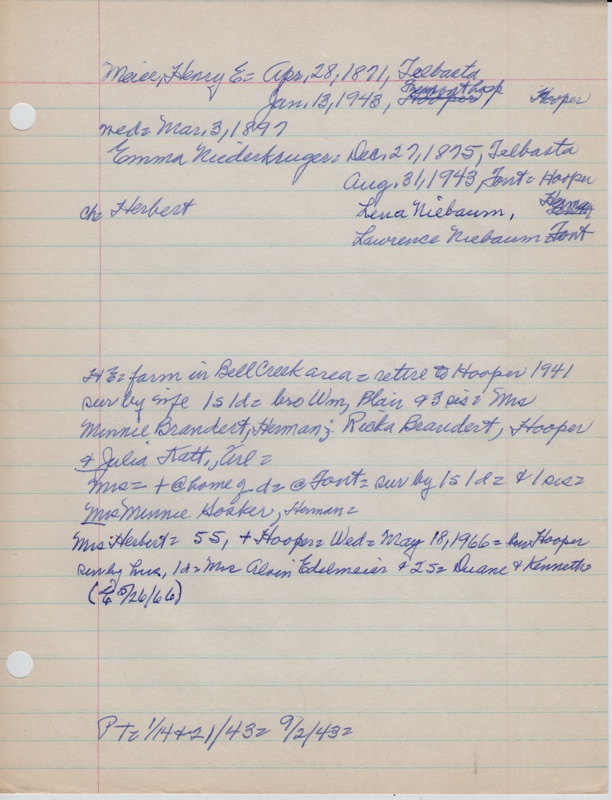 Meier, Henry E = Apr, 28, 1871, Telbasta
Jan. 13, 1943, Hooper Hooper
wed = Mar, 3, 1897
Emma Niederkruger = Dec. 27, 1875, Telbasta
Aug. 31, 1943, Font = Hooper
ch = Herbert Lena Niebaum,
Lawrence Niebaum = Font
HE = farm in Bell Creek area = retire to Hooper 1941
sur by wife 1s 1d = bro Wm, Blair & 3 sis = Mrs
Minnie Brandert, Herman; Ricka Brandert, Hooper
& Julia Katt, Arl =
Mrs = + @ home of d = @ Font = sur by 1s 1d = & 1 sis =
Mrs Minnie Herman =
Mrs Herbert = 55, + Hooper = Wed = May 18, 1966 = bur Hooper
sur by hus, 1d = Mrs Alvin Edelmeier & 2s = Duane & Kenneth
5/26/66)
PT = 1/14 & 21/43 = 9/2/43 =